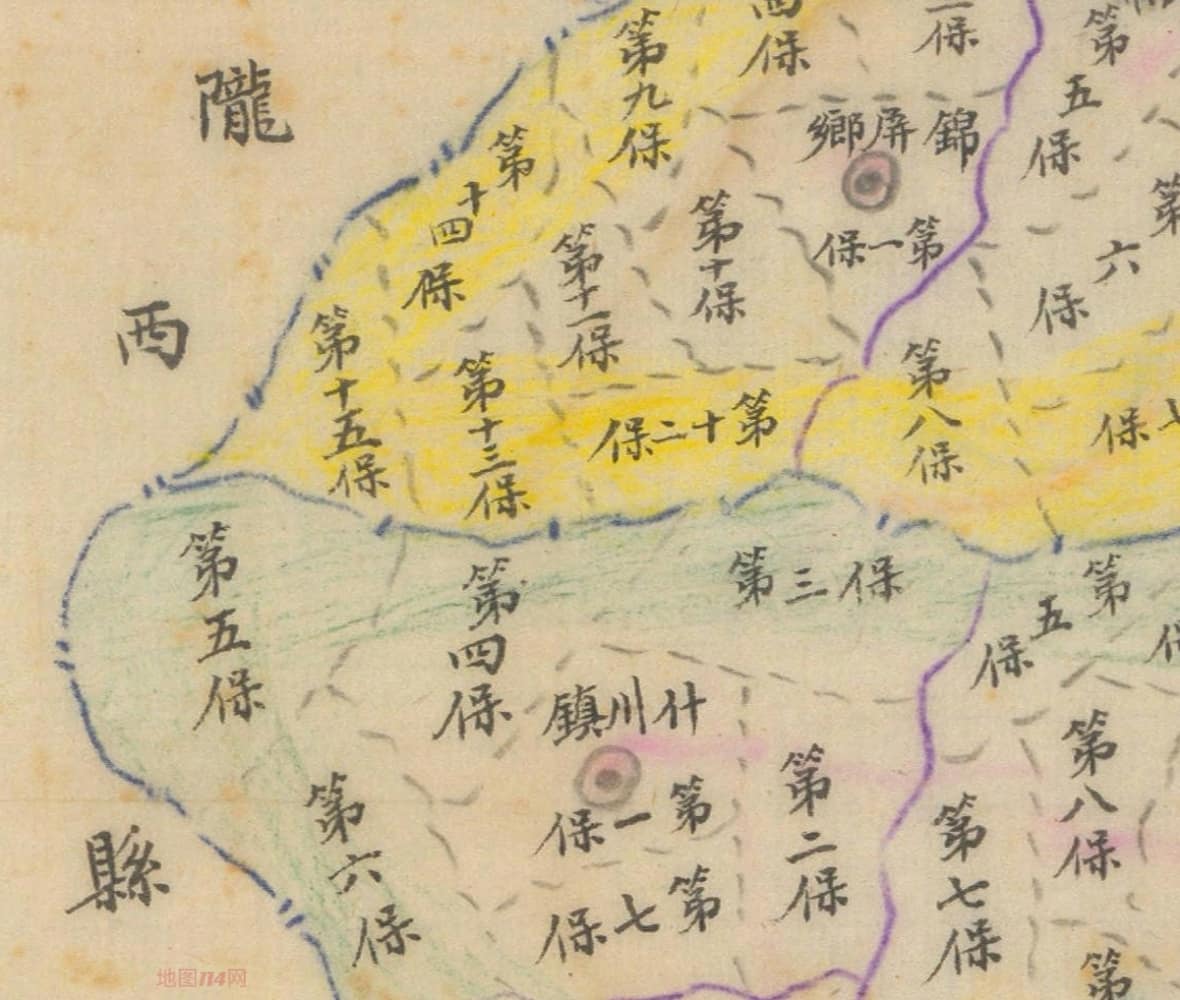 隴
西
縣
第九保
四保
二保
第五保
錦屏鄉
第一保
第十四保
第十保
第十一保
第六保
第十五保
第十三保
第十二保
第八保
七保
第五保
第四保
第三保
第五保
什川鎮
第一保
第二保
第六保
第七保
第七保
第八保
第
地图114网